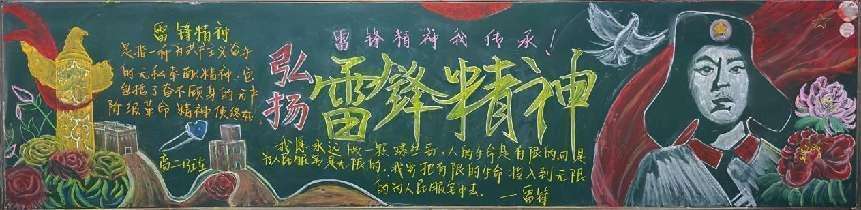 雷锋精神
是指一种为共产主义奋斗
的无私奉献精神，它
包括了奋不顾身的无产
阶级革命精神
高二
雷锋精神我传承！
弘扬
雷锋精神
我愿永远做一颗螺丝钉，人的生命是有限的可是
为人民服务是无限的，我要把有限的生命投入到无限
的为人民服务中去。
—雷锋